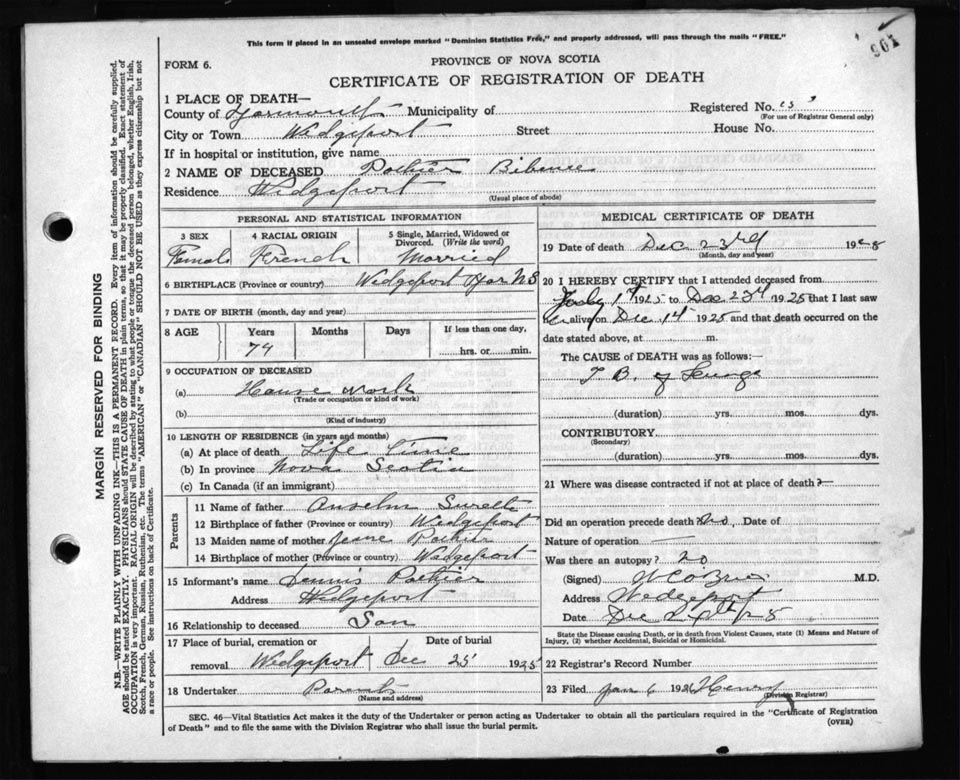 This form if placed in an unsealed envelope marked "Dominion Statistics Free," and properly addressed, will pass through the mails "FREE."
961
FORM 6.
PROVINCE OF NOVA SCOTIA
CERTIFICATE OF REGISTRATION OF DEATH
1 PLACE OF DEATH—
County of Yarmouth Municipality of
Registered No.
(For use of Registrar General only)
City or Town Wedgeport Street House No.
If in hospital or institution, give name
2 NAME OF DECEASED Pothier
Residence Wedgeport
(Usual place of abode)
PERSONAL AND STATISTICAL INFORMATION
3 SEX
Female
4 RACIAL ORIGIN
French
5 Single, Married, Widowed or Divorced. (Write the word)
Married
6 BIRTHPLACE (Province or country) Wedgeport Yar N S
7 DATE OF BIRTH (month, day and year)
8 AGE Years Months Days If less than one day,
74 hrs. or min.
9 OCCUPATION OF DECEASED
(a) House work
(Trade or occupation or kind of work)
(b)
(Kind of industry)
10 LENGTH OF RESIDENCE (in years and months)
(a) At place of death Life time
(b) In province Nova Scotia
(c) In Canada (if an immigrant)
Parents
11 Name of father Anselm Surette
12 Birthplace of father (Province or country) Wedgeport
13 Maiden name of mother Jeane Pothier
14 Birthplace of mother (Province or country) Wedgeport
15 Informant's name Dennis Pothier
Address Wedgeport
16 Relationship to deceased Son
17 Place of burial, cremation or Date of burial
removal Wedgeport Dec 25 1925
18 Undertaker
(Name and address)
MEDICAL CERTIFICATE OF DEATH
19 Date of death Dec 23rd 1925
(Month, day and year)
20 I HEREBY CERTIFY that I attended deceased from
1st 1925 to Dec 23rd 1925 that I last saw
her alive on Dec 14 1925 and that death occurred on the
date stated above, at m.
The CAUSE of DEATH was as follows:—
T B of Lungs
(duration) yrs. mos. dys.
CONTRIBUTORY
(Secondary)
(duration) yrs. mos. dys.
21 Where was disease contracted if not at place of death?
Did an operation precede death? No, Date of
Nature of operation —
Was there an autopsy? No
(Signed) M.D.
Address Wedgeport
Date Dec
State the Disease causing Death, or in death from Violent Causes, state (1) Means and Nature of Injury, (2) whether Accidental, Suicidal or Homicidal.
22 Registrar's Record Number
23 Filed Jan 6 1926 Henry
(Division Registrar)
SEC. 46—Vital Statistics Act makes it the duty of the Undertaker or person acting as Undertaker to obtain all the particulars required in the "Certificate of Registration
of Death" and to file the same with the Division Registrar who shall issue the burial permit.
(OVER)
MARGIN RESERVED FOR BINDING
N.B.—WRITE PLAINLY WITH UNFADING INK—THIS IS A PERMANENT RECORD. Every item of information should be carefully supplied.
AGE should be stated EXACTLY. PHYSICIANS should STATE CAUSE OF DEATH in plain terms, so that it may be properly classified. Exact statement of
OCCUPATION is very important. RACIAL ORIGIN will be described by stating to what people or tongue the deceased person belonged, whether English, Irish,
Scotch, French, German, Russian, Ruthenian, etc. The terms "AMERICAN" or "CANADIAN" SHOULD NOT BE USED as they express citizenship but not
a race or people. See instructions on back of Certificate.